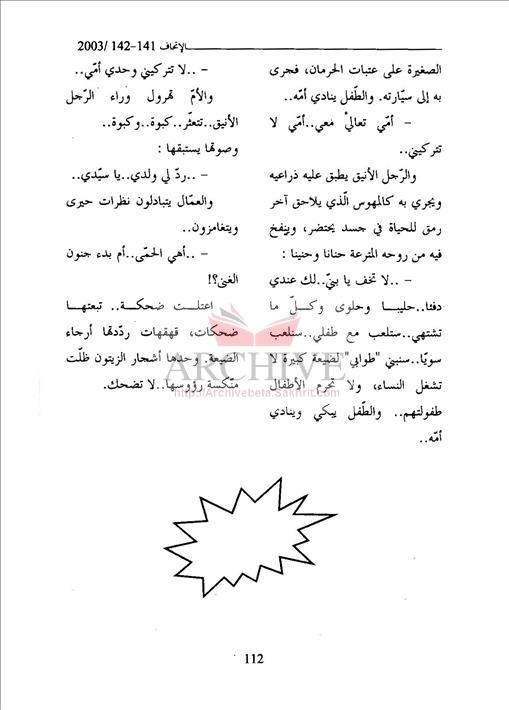 الإتحاف 141-142 /2003
الصغيرة على عتبات الحرمان، فجرى
به إلى سيّارته. والطّفل ينادي أمّه..
- أمّي تعاليْ معي..أمّي لا
تتركيني..
والرّجل الأنيق يطبق عليه ذراعيه
ويجري به كالمهوس الّذي يلاحق آخر
رمق للحياة في جسد يحتضر، وينفخ
فيه من روحه المترعة حنانا وحنينا :
- ..لا تخف يا بنيّ..لك عندي
دفئا..حليبا وحلوى وكلّ ما
تشتهي..ستلعب مع طفلي..ستلعب
سويّا..سنبني "طوابي" لضيعة كبيرة لا
تشغل النساء، ولا تحرم الأطفال
طفولتهم.. والطّفل يبكي وينادي
أمّه..
- ..لا تتركيني وحدي أمّي..
والأمّ تهرول وراء الرّجل
الأنيق..تتعثّر..كبوة..وكبوة..
وصوتها يستبقها :
- ..ردّ لي ولدي..يا سيّدي..
والعمّال يتبادلون نظرات حيرى
ويتغامزون..
- ..أهي الحمّى..أم بدء جنون
الغنى؟!
اعتلت ضحكة.. تبعتها
ضحكات، قهقهات ردّدتها أرجاء
الضّيعة. وحدها أشجار الزيتون ظلّت
منكّسة رؤوسها..لا تضحك.
ARCHIVE
http://Archivebeta.Sakhrit.com
112